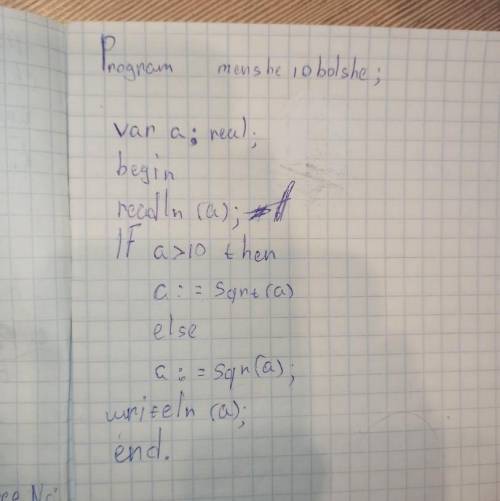 Program menshe 10 bolshe;
var a: real;
begin
readln (a);
If a>10 then
a:= sqrt(a)
else
a:= sqr(a);
writeln (a);
end.